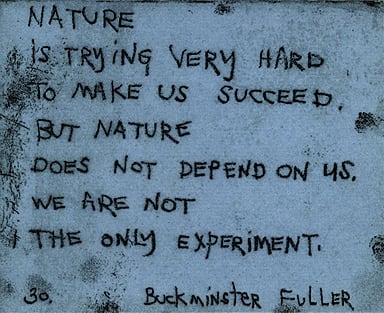 NATURE
IS TRYING VERY HARD
TO MAKE US SUCCEED.
BUT NATURE
DOES NOT DEPEND ON US.
WE ARE NOT
THE ONLY EXPERIMENT.
30. Buckminster Fuller